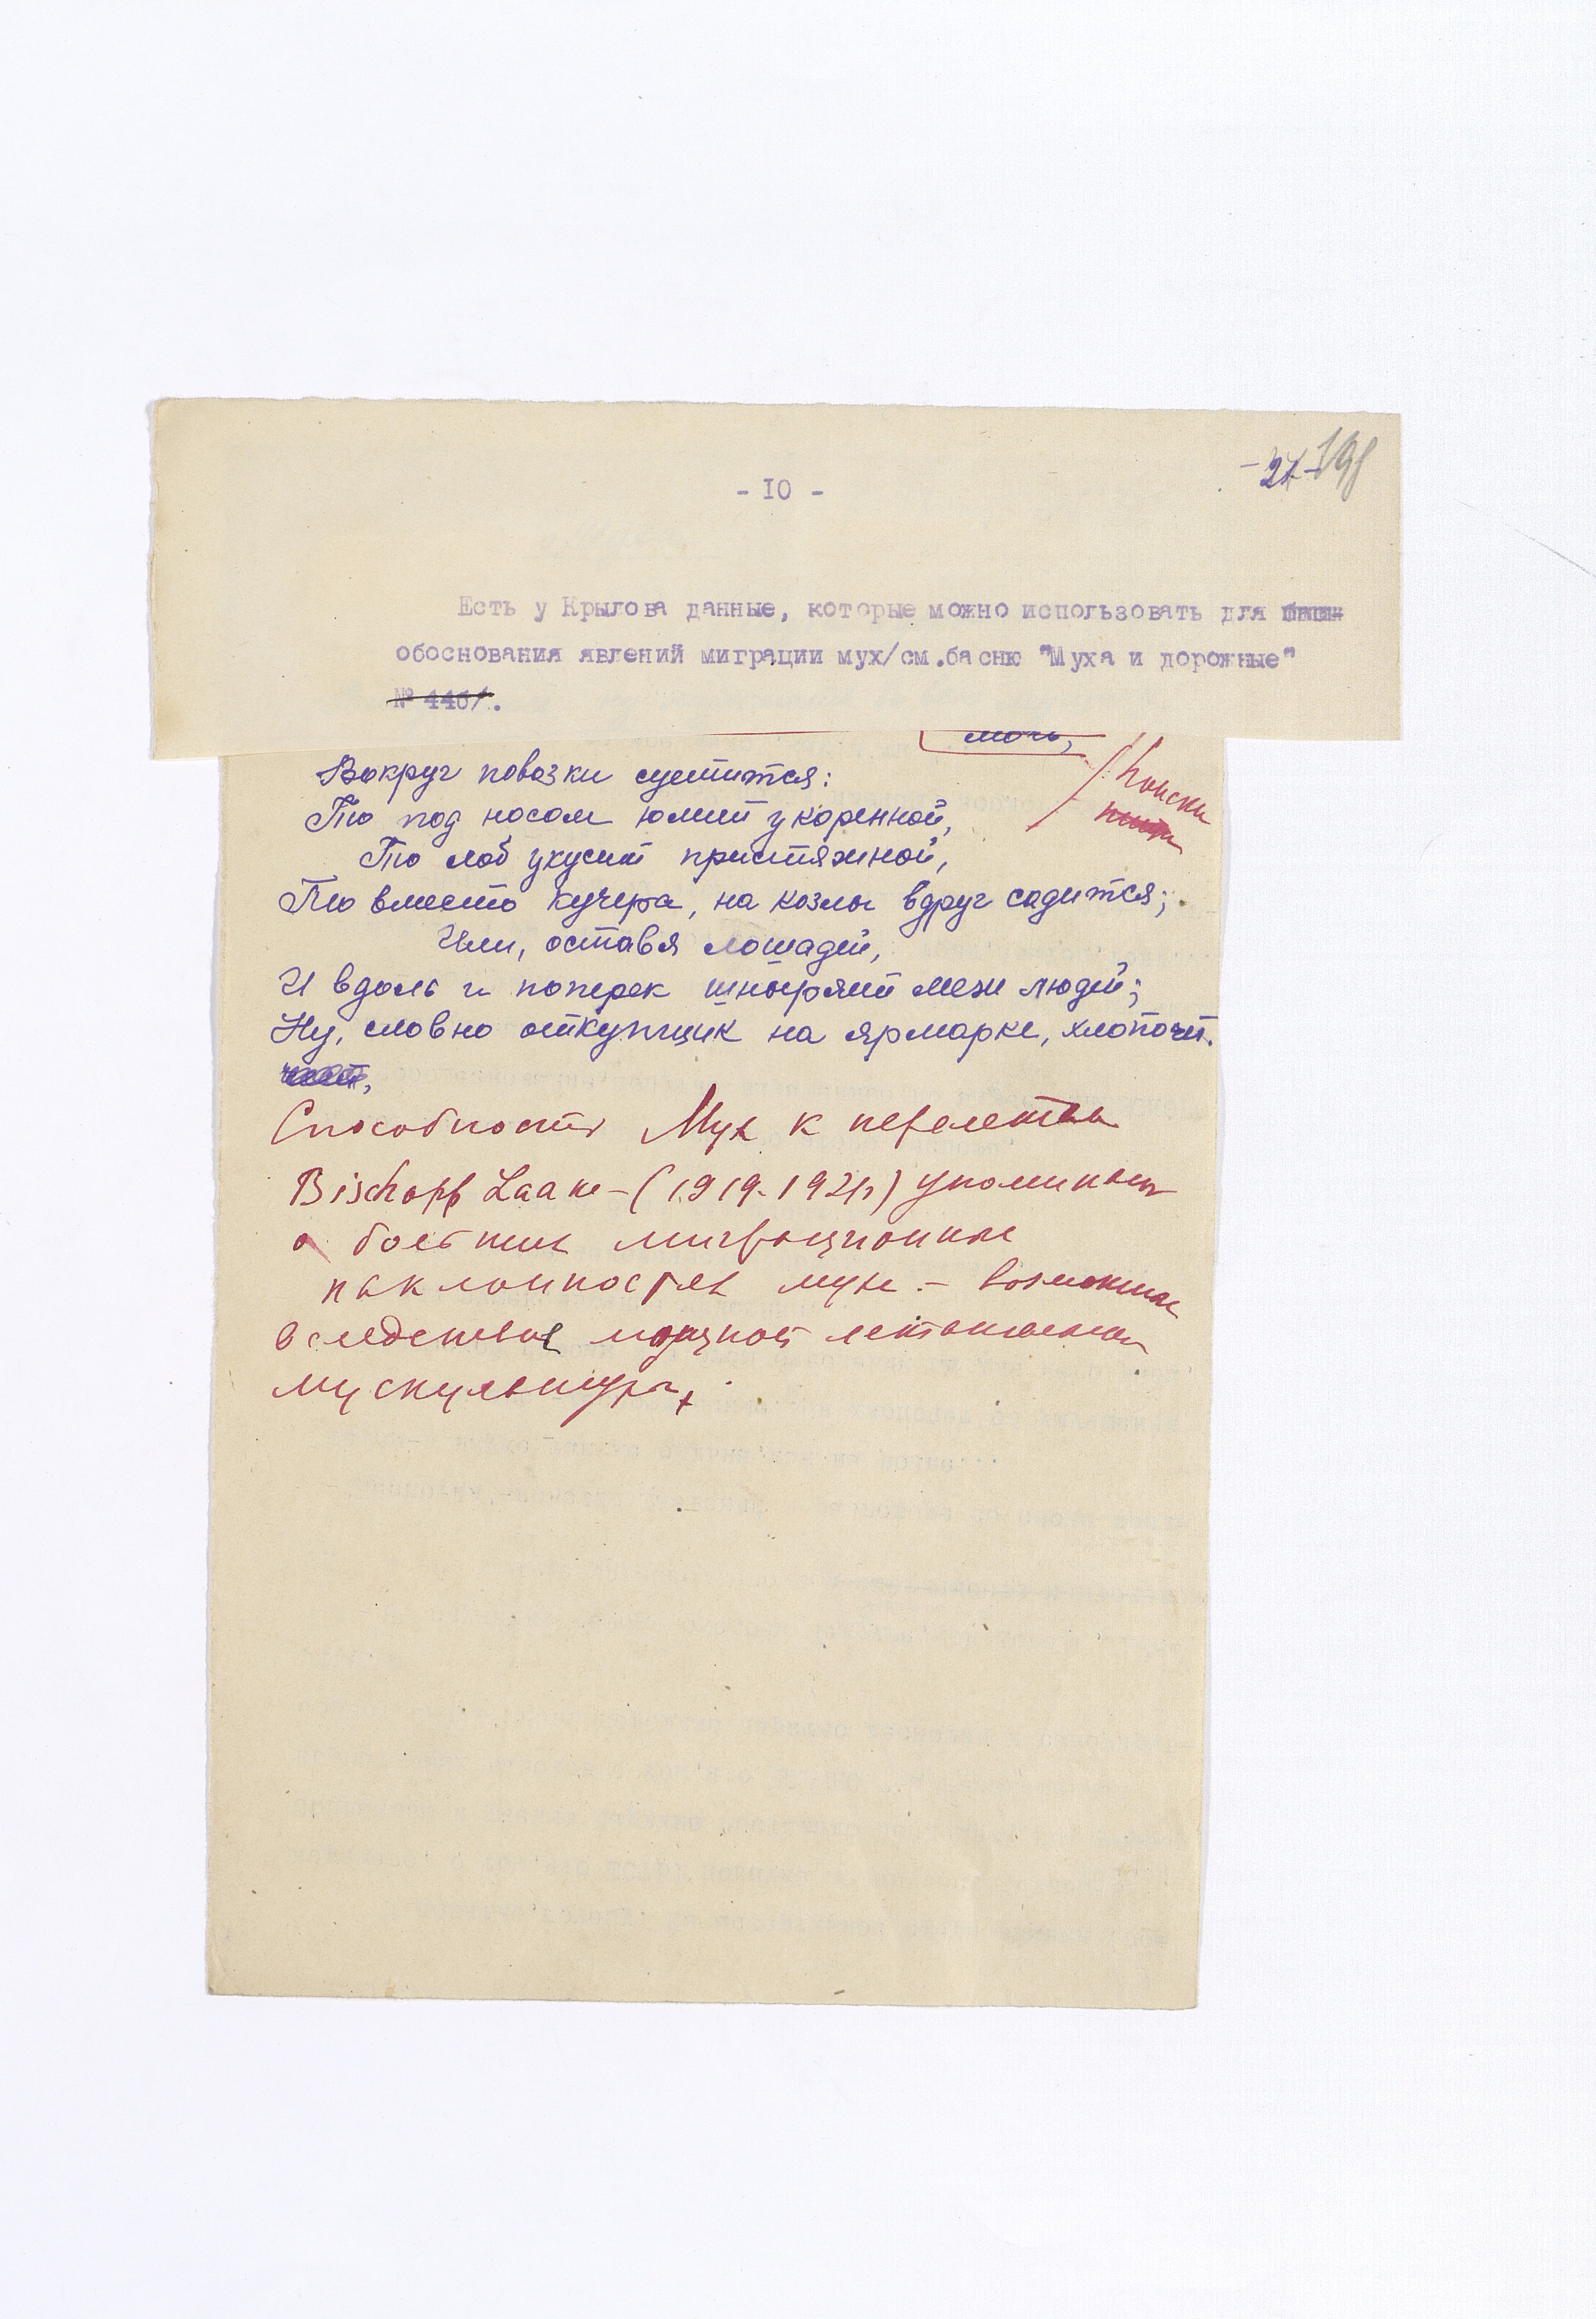 - 10 -
-27- 198
Есть у Крылова данные, которые можно использовать для
обоснования явлений миграции мух/см.басню "Муха и дорожные"
№ 446/.
мочь,
Вокруг повозки суетится:
То под носом юлит у коренной,
То лоб укусит пристяжной,
То вместо кучера, на козлы вдруг садится;
Или, оставя лошадей,
И вдоль и поперек шныряет меж людей;
Ну, словно откупщик на ярмарке, хлопочет.
Поиски
пищи
Способность Мух к перелетам
Bischopp Laake - (1919-1921) упоминает
о больших миграционных
наклонностях мух - возможных
вследствие мощной летательной
мускулатуры.